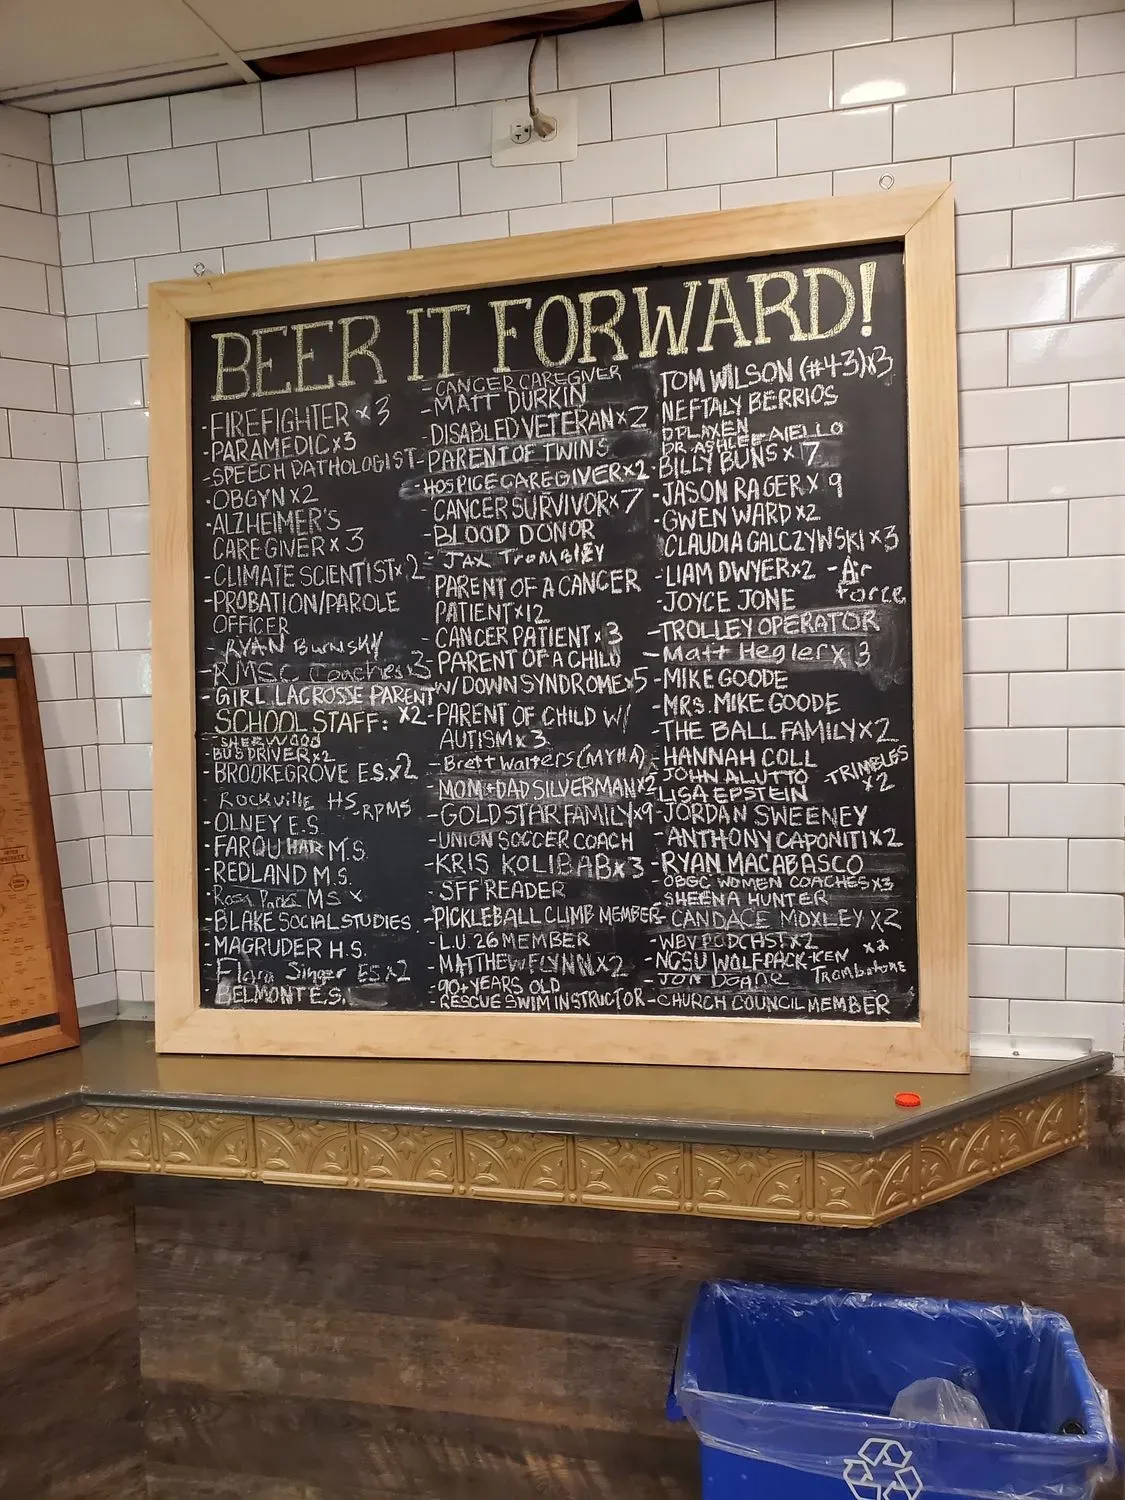 BEER IT FORWARD!
-FIREFIGHTER x3
-PARAMEDIC x3
-SPEECH PATHOLOGIST
-OBGYN x2
-ALZHEIMER'S
CAREGIVER x 3
-CLIMATE SCIENTIST x 2
-PROBATION/PAROLE
OFFICER
-RYAN
-RMSC Coaches 3
-GIRL LACROSSE PARENT
x2
SCHOOL STAFF:
-SHERWOOD
BUS DRIVER x2
-BROOKEGROVE E.S. x2
Rockville HS
-RPMS
-OLNEY E.S.
-FARQUHAR M.S.
-REDLAND M.S.
-Rosa Parks MS x
-BLAKE SOCIAL STUDIES
-MAGRUDER H.S.
-Flora Singer ES x2
-BELMONT E.S.
-CANCER CAREGIVER
-MATT DURKIN
-DISABLED VETERAN x2
-PARENT OF TWINS
-HOSPICE CAREGIVER x2
-CANCER SURVIVOR x 7
-BLOOD DONOR
-JAX TromblEY
PARENT OF A CANCER
PATIENT x12
-CANCER PATIENT x 3
-PARENT OF A CHILD
W/DOWN SYNDROME x5
-PARENT OF CHILD W/
AUTISM x 3
-Brett Walters (MYHA)
-MOM + DAD SILVERMAN x2
-GOLD STAR FAMILY x9
-UNION SOCCER COACH
-KRIS KOLIBAB x3
-SFF READER
-PICKLEBALL CLIMB MEMBER
-L.U. 26 MEMBER
-MATTHEW FLYNN x2
-90+ YEARS OLD
-RESCUE SWIM INSTRUCTOR
TOM WILSON (#43) x3
NEFTALY BERRIOS
DR. ASHLEE AIELLO
-BILLY BUNS x 7
-JASON RAGER x 9
-GWEN WARD x2
CLAUDIA GALCZYWSKI x3
-LIAM DWYER x2 -Air
Force
-JOYCE JONE
-TROLLEY OPERATOR
-Matt Hegler x 3
-MIKE GOODE
-MRS. MIKE GOODE
-THE BALL FAMILY x2
-HANNAH COLL
JOHN ALUTTO
TRIMBLES
x2
LISA EPSTEIN
-JORDAN SWEENEY
-ANTHONY CAPONITI x2
-RYAN MACABASCO
OBGC WOMEN COACHES x3
-SHEENA HUNTER
-CANDACE MOXLEY x2
-WBV PODCAST x2
-NCSU WOLFPACK-KEN
x2
Trombatone
-JON DOANE
-CHURCH COUNCIL MEMBER